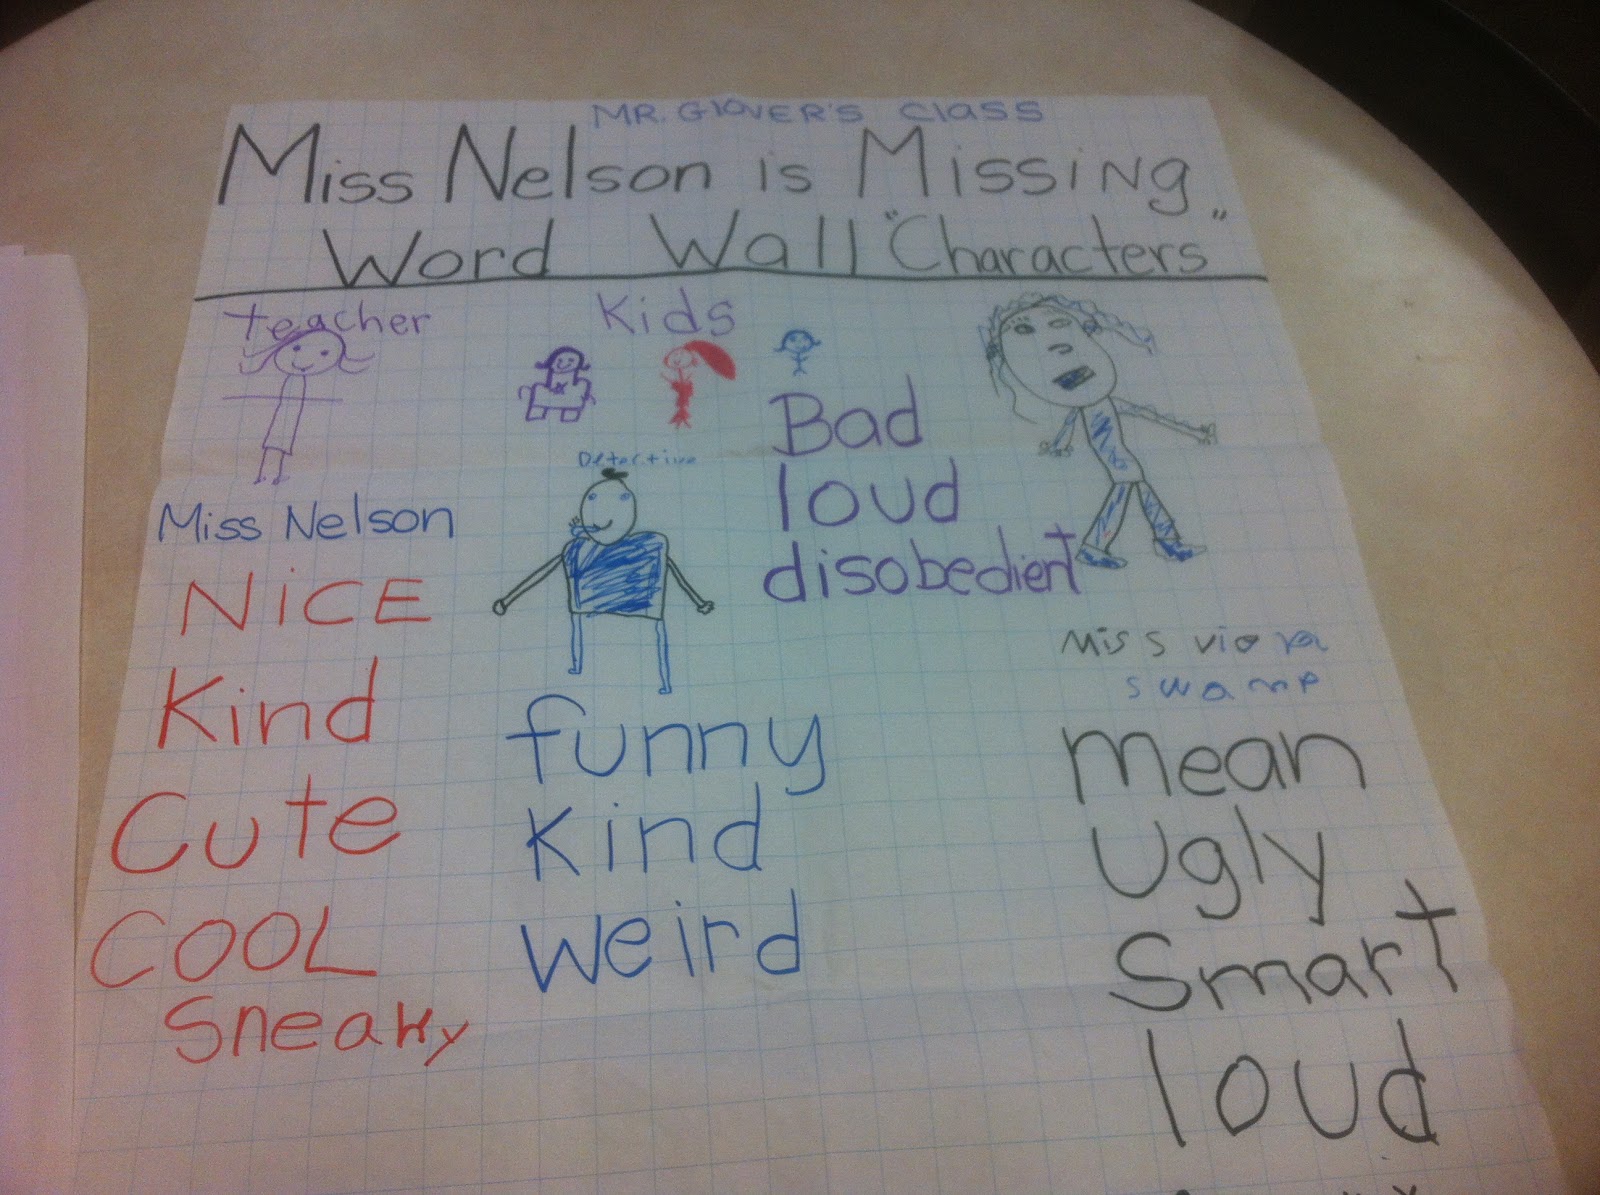 MR. GlOVER'S ClASS
Miss Nelson is Missing
Word Wall "Characters"
teacher
Kids
Detective
Bad
loud
disobedient
Miss Nelson
NiCE
Kind
Cute
COOL
Sneaky
funny
Kind
weird
Miss viola
swamp
mean
Ugly
Smart
loud